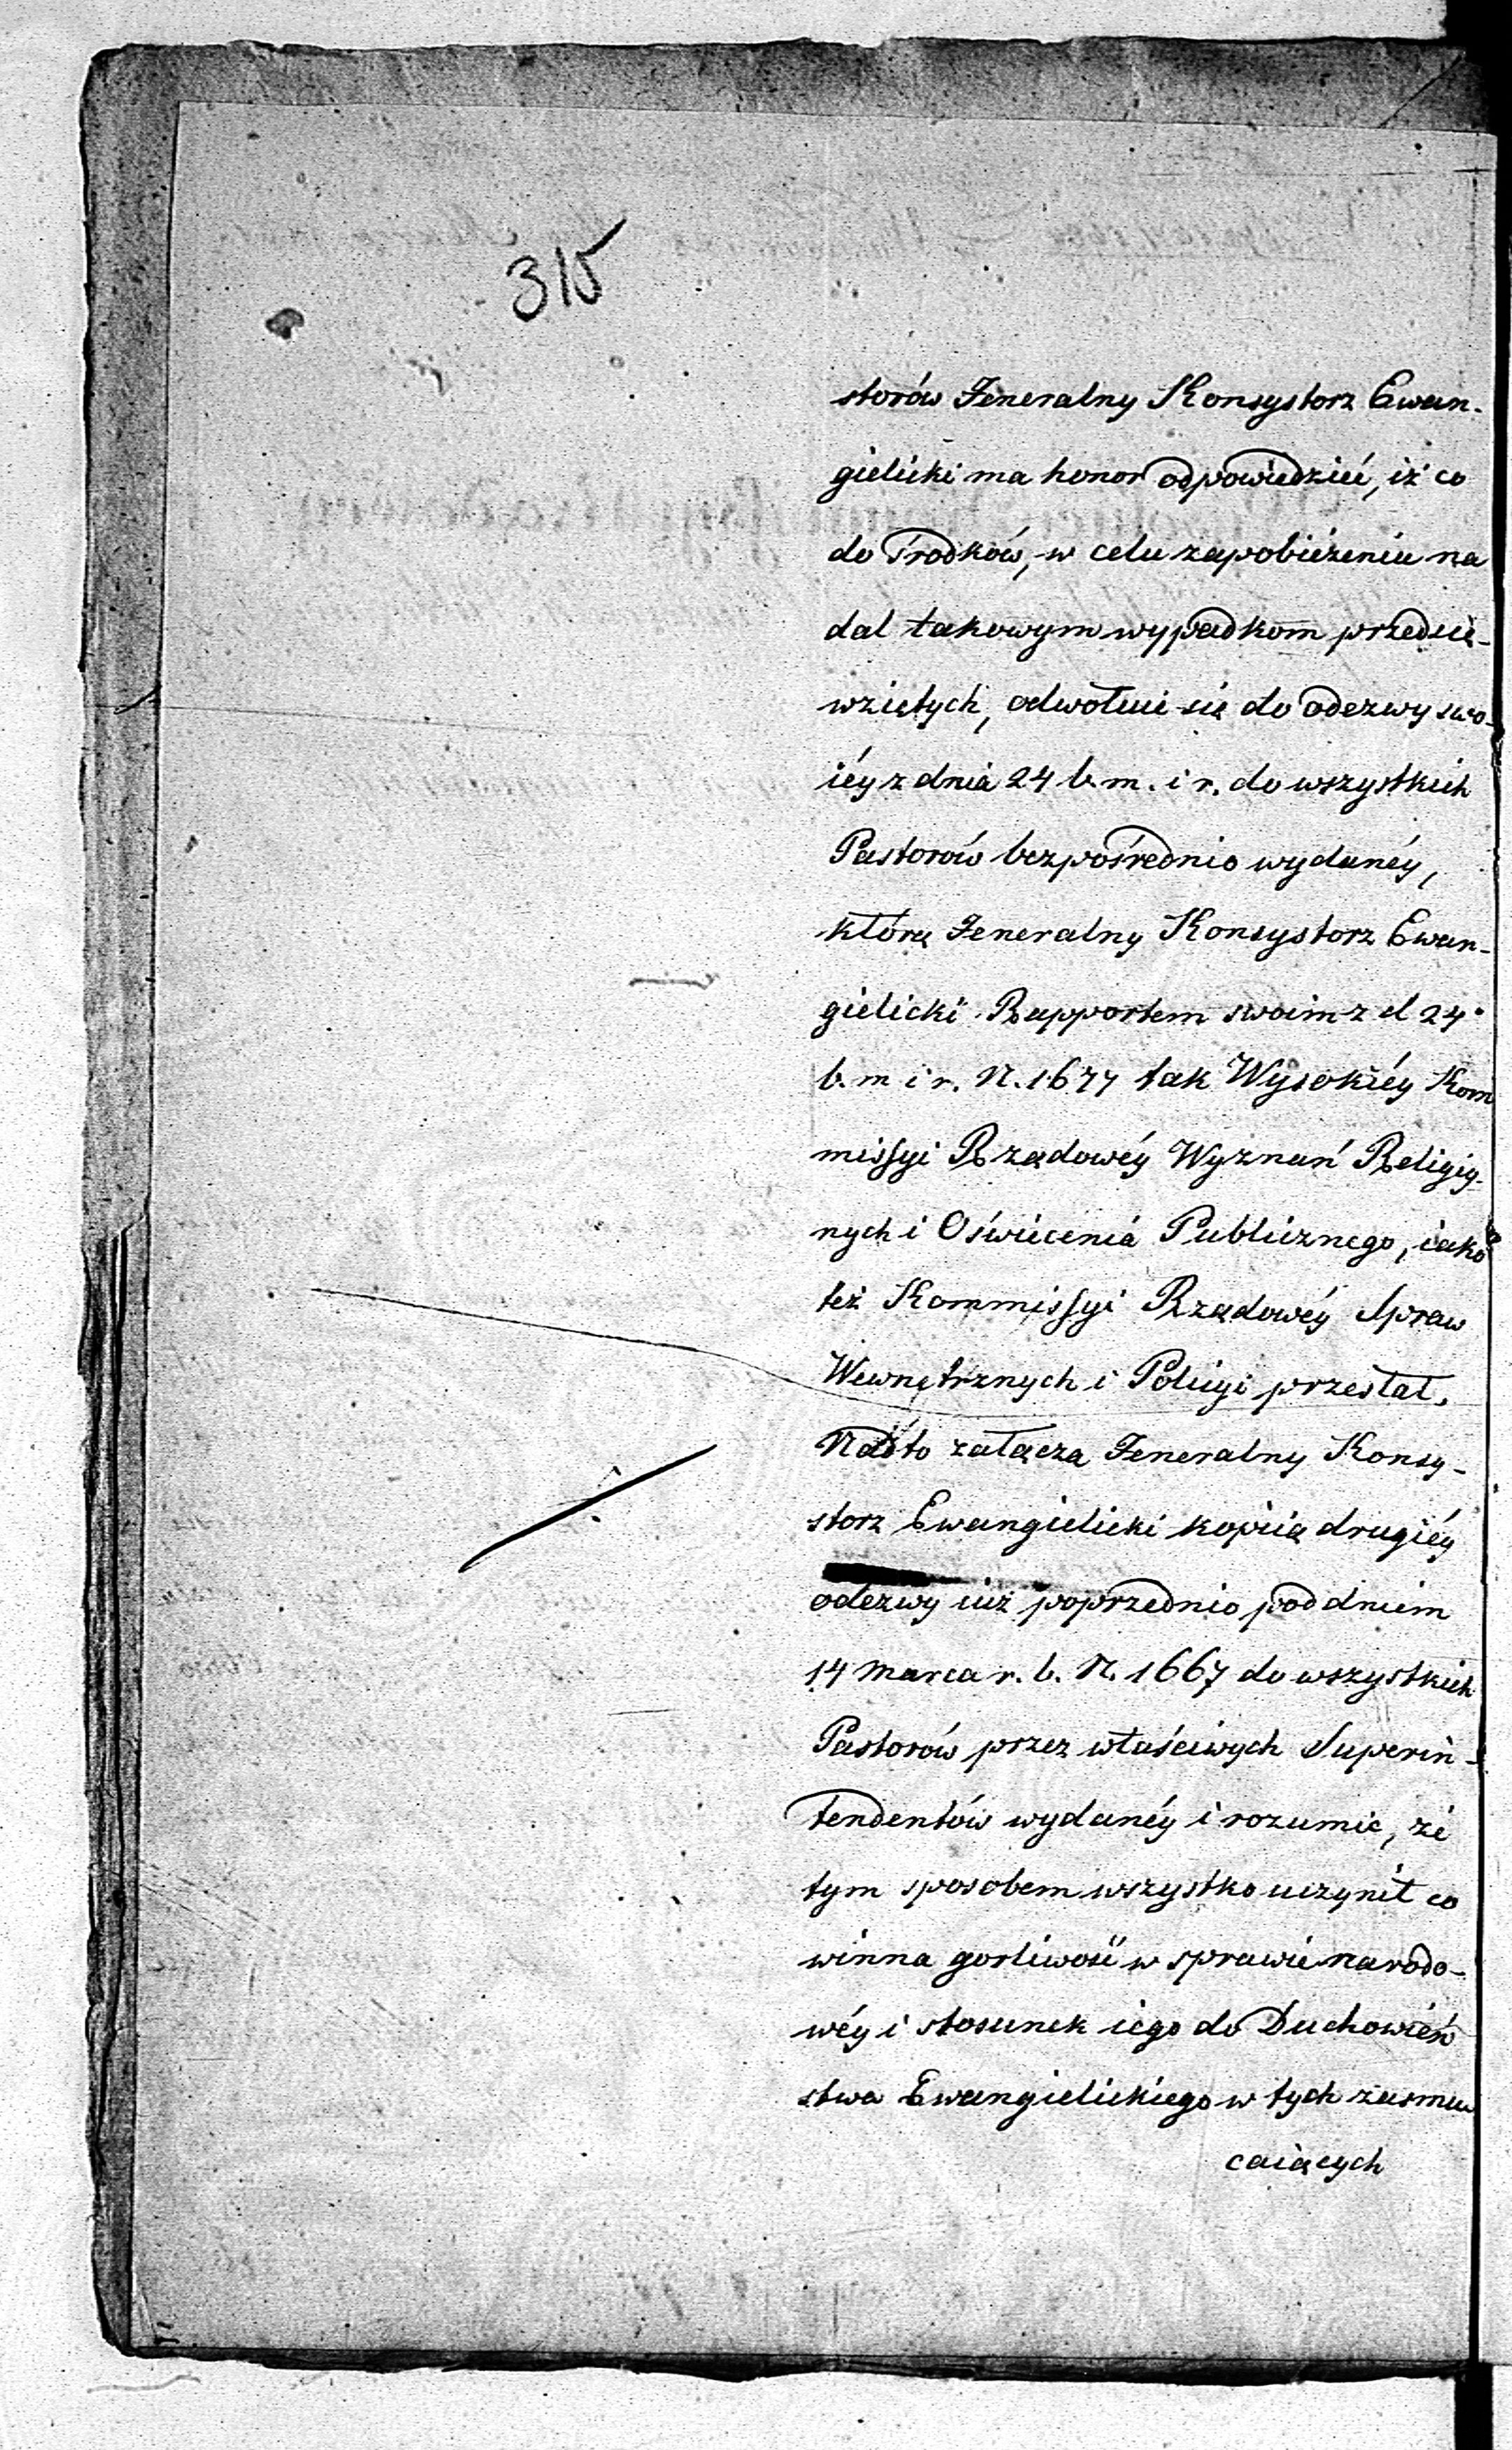 315
storów Jeneralny Konsystorz Ewan-
gielicki ma honor odpowiedzieć, iż co
do środków, w celu zapobieżenia na
dal takowym wypadkom przedsię-
wziętych, odwołuie się do odezwy swo-
iéy z dnia 24 b. m. i r. do wszystkich
Pastorów bezpośrednio wydanéy,
którą Jeneralny Konsystorz Ewan-
gielicki Rapportem swoim z d 24.
b. m i r. N. 1677 tak Wysokiéy Kom
missyi Rządowéy Wyznań Religiy-
nych i Oświecenia Publicznego, iako
też Kommissyi Rządowéy Spraw
Wewnętrznych i Policyi przesłał.
Nadto załącza Jeneralny Konsy-
storz Ewangielicki kopią drugiéy
odezwy iuż poprzednio pod dniem
14 Marca r. b. N. 1667 do wszystkich
Pastorów przez właściwych Superin-
tendentów wydanéy i rozumie, że
tym sposobem wszystko uczynił co
winna gorliwość w sprawie narodo-
wéy i stosunek iego do Duchowień
stwa Ewangielickiego w tych zasmu
caiących